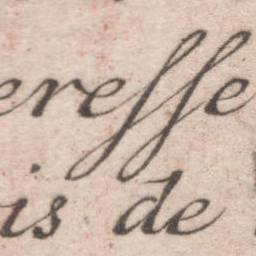 eresse
is de